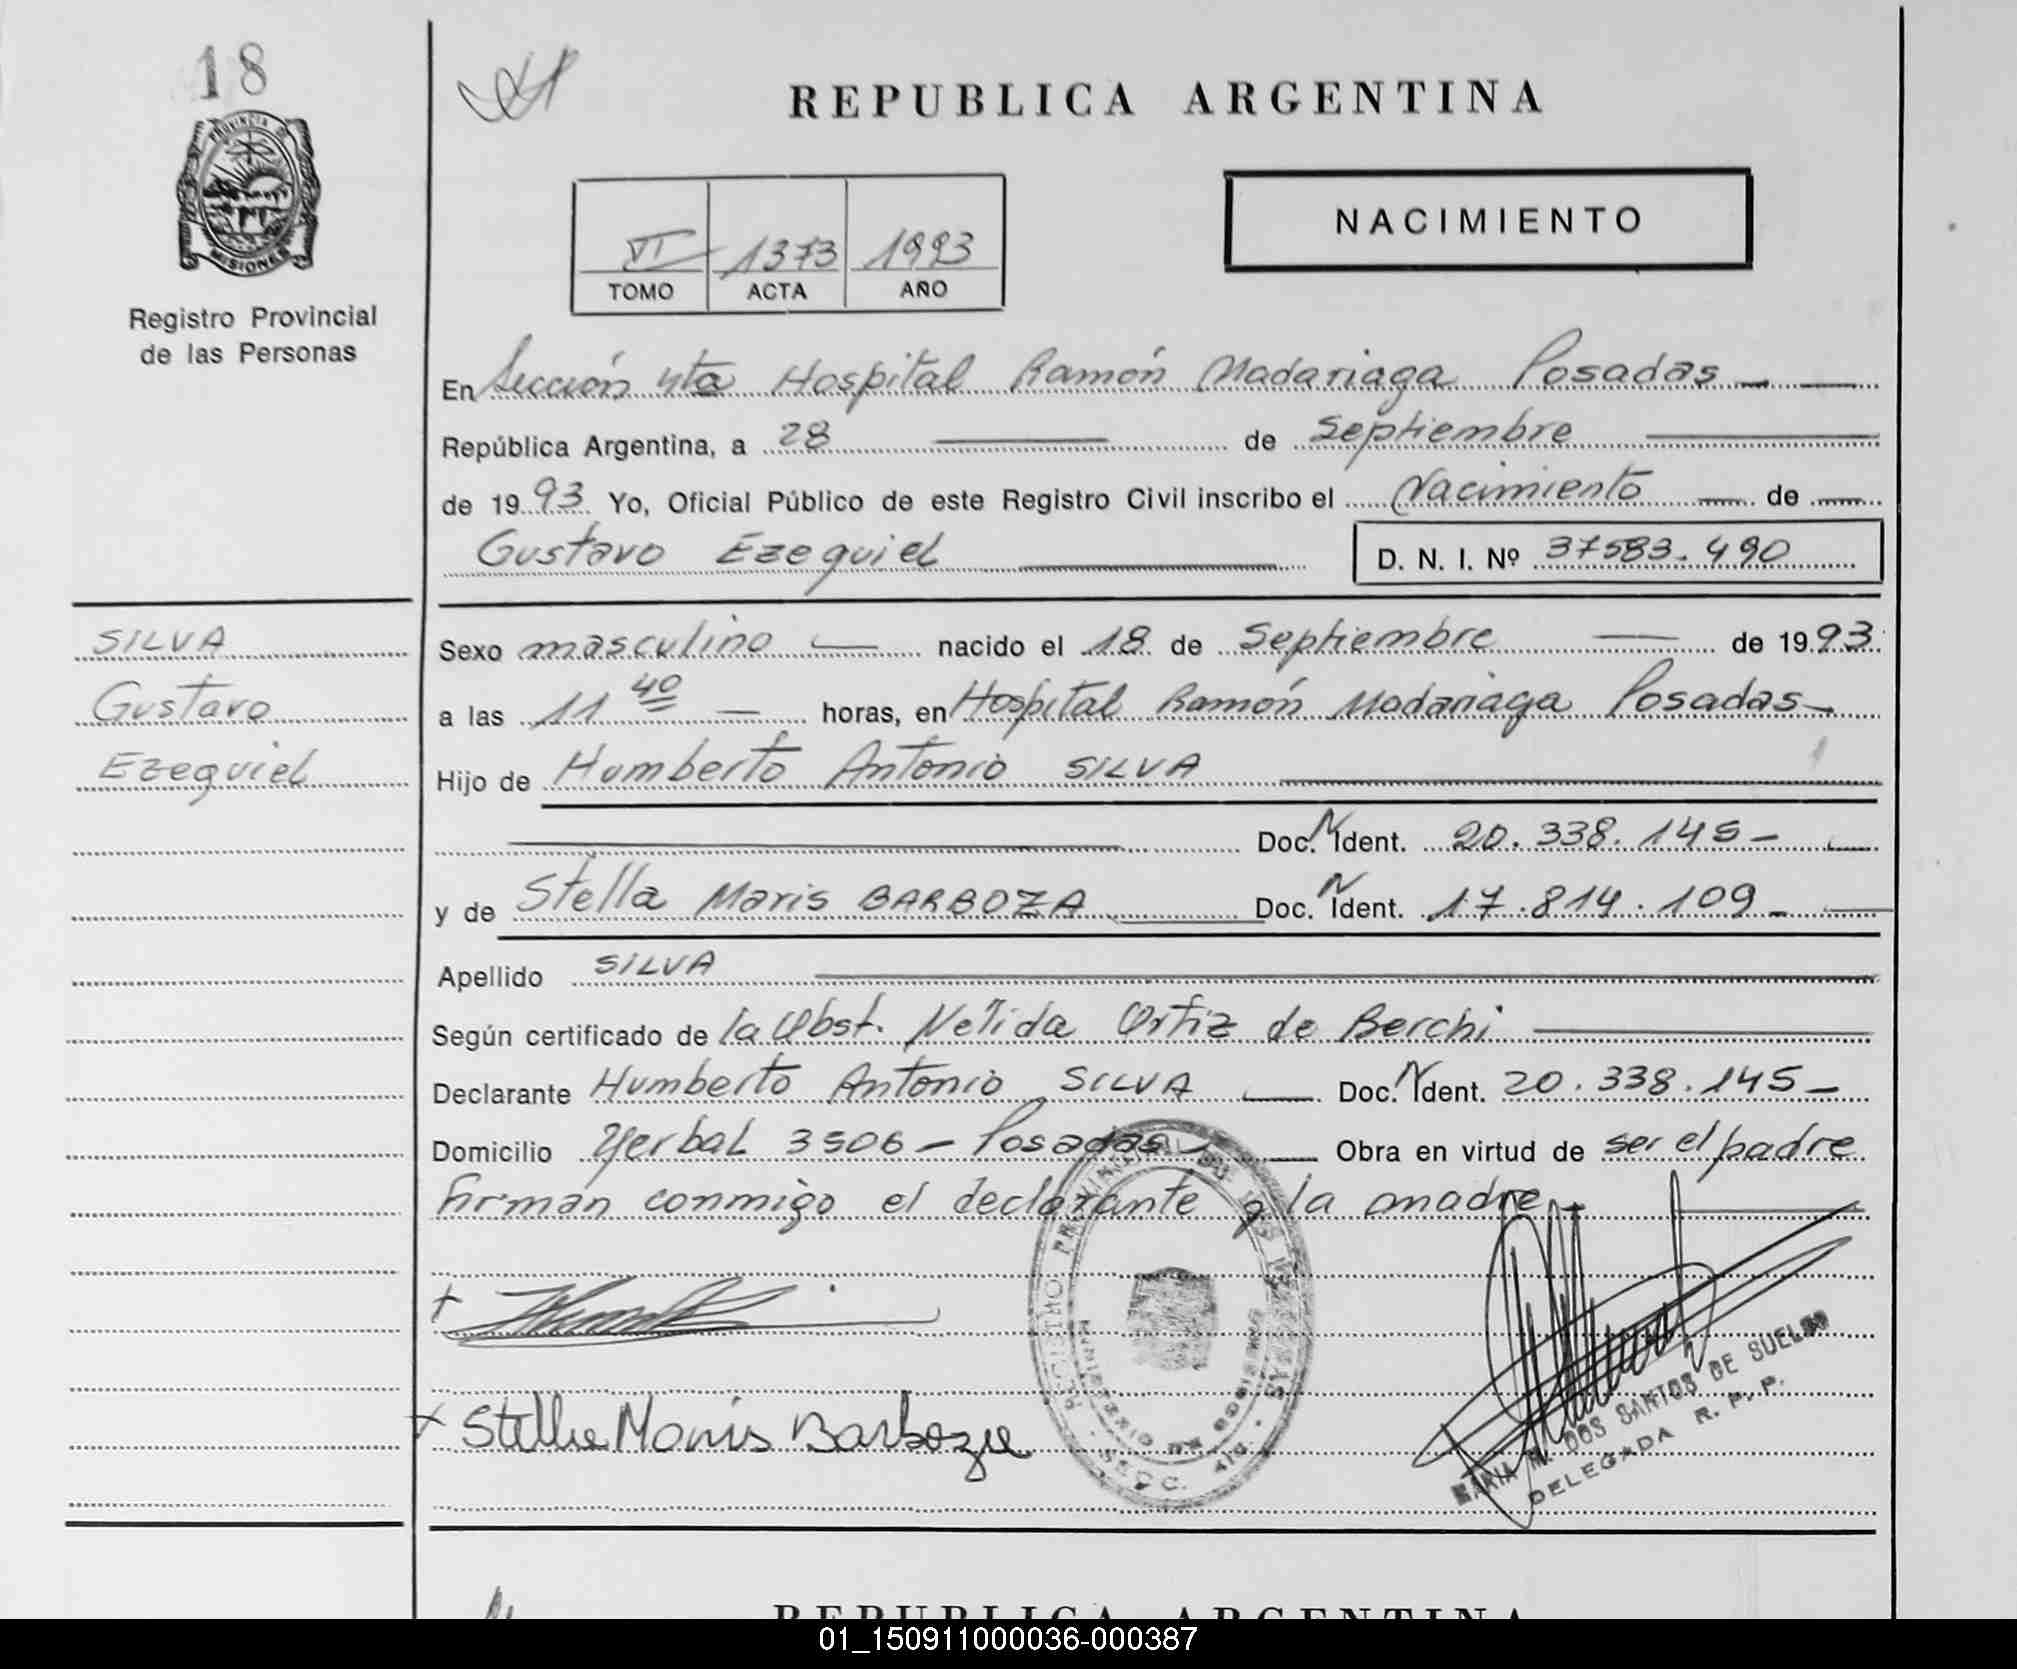 18
PROVINCIA DE
MISIONES
Registro Provincial
de las Personas
REPUBLICA ARGENTINA
NACIMIENTO
VI 1373 1993
TOMO ACTA AÑO
En Sección 4ta Hospital Ramón Madariaga Posadas
República Argentina, a 28 de Septiembre
de 1993 Yo, Oficial Público de este Registro Civil inscribo el Nacimiento de
Gustavo Ezequiel D. N. I. Nº 37583.490
SILVA
Gustavo
Ezequiel
Sexo masculino nacido el 18 de Septiembre de 1993
a las 11 40 horas, en Hospital Ramón Madariaga Posadas
Hijo de Humberto Antonio SILVA
Doc. N Ident. 20.338.145-
y de Stella Maris BARBOZA Doc. N Ident. 17.814.109-
Apellido SILVA
Según certificado de la Obst. Nélida Ortiz de Berchi
Declarante Humberto Antonio SILVA Doc. N Ident. 20.338.145-
Domicilio Yerbal 3506 - Posadas Obra en virtud de ser el padre
Firman conmigo el declarante y la madre
REGISTRO PROVINCIAL DE LAS PERSONAS
SECC. 4ta.
Stella Maris Barboza
MARIA DOS SANTOS DE SUELDO
DELEGADA R. P. P.
REPUBLICA ARGENTINA
01_150911000036-000387